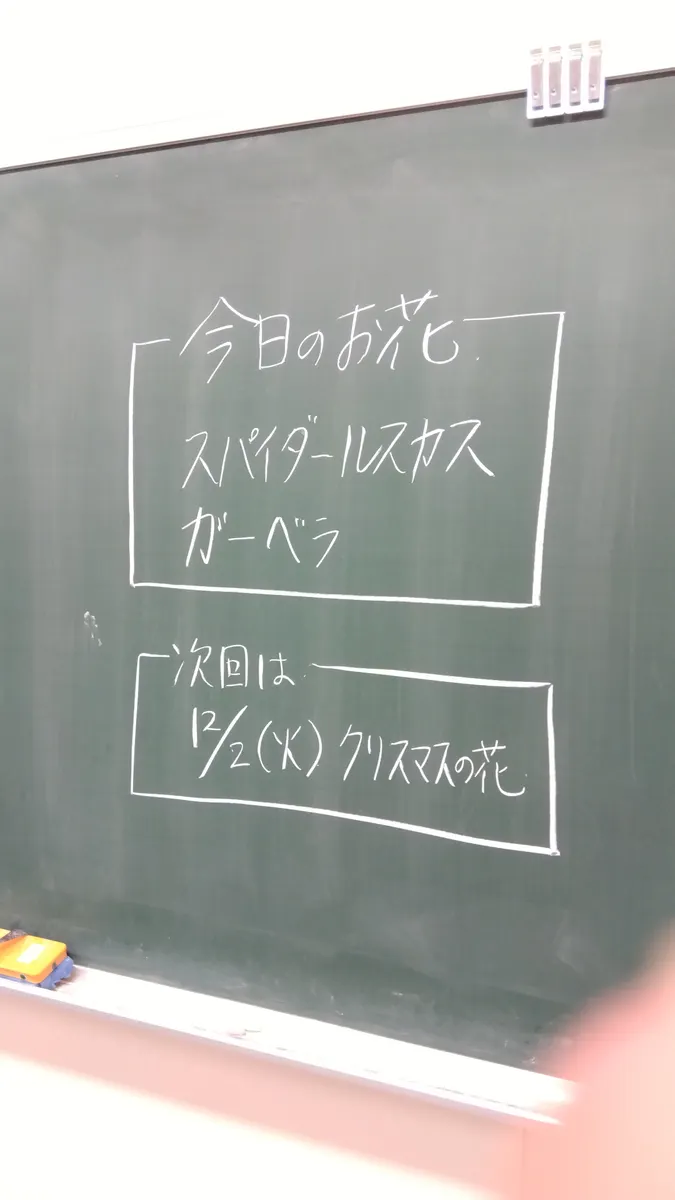 今日のお花
スパイダールスカス
ガーベラ
次回は
12/2(火) クリスマスの花